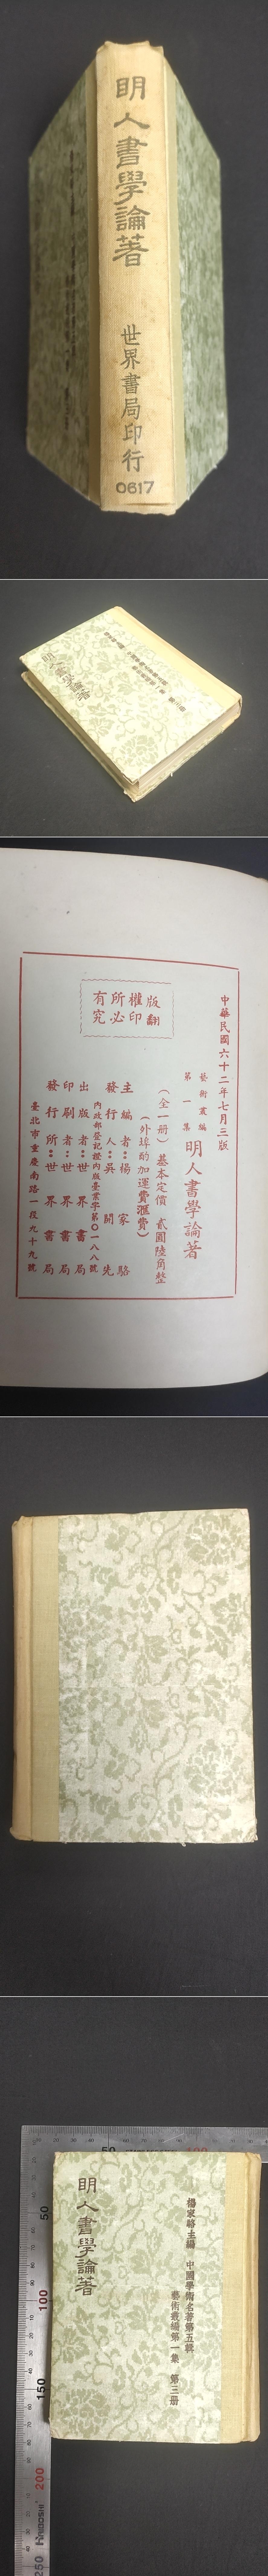 明人書學論著
世界書局印行
0617
明人書學論著
中華民國六十二年七月三版
藝術叢編
第一集
明人書學論著
(全一冊) 基本定價 貳圓陸角整
(外埠酌加運費滙費)
主編者:楊家駱
發行人:吳開先
內政部登記證內版臺業字第〇一八八號
出版者:世界書局
印刷者:世界書局
發行所:世界書局
臺北市重慶南路一段九十九號
版權所有
翻印必究
楊家駱主編 中國學術名著第五輯
藝術叢編第一集 第三冊
明人書學論著
50
100
50
100
150
200
250